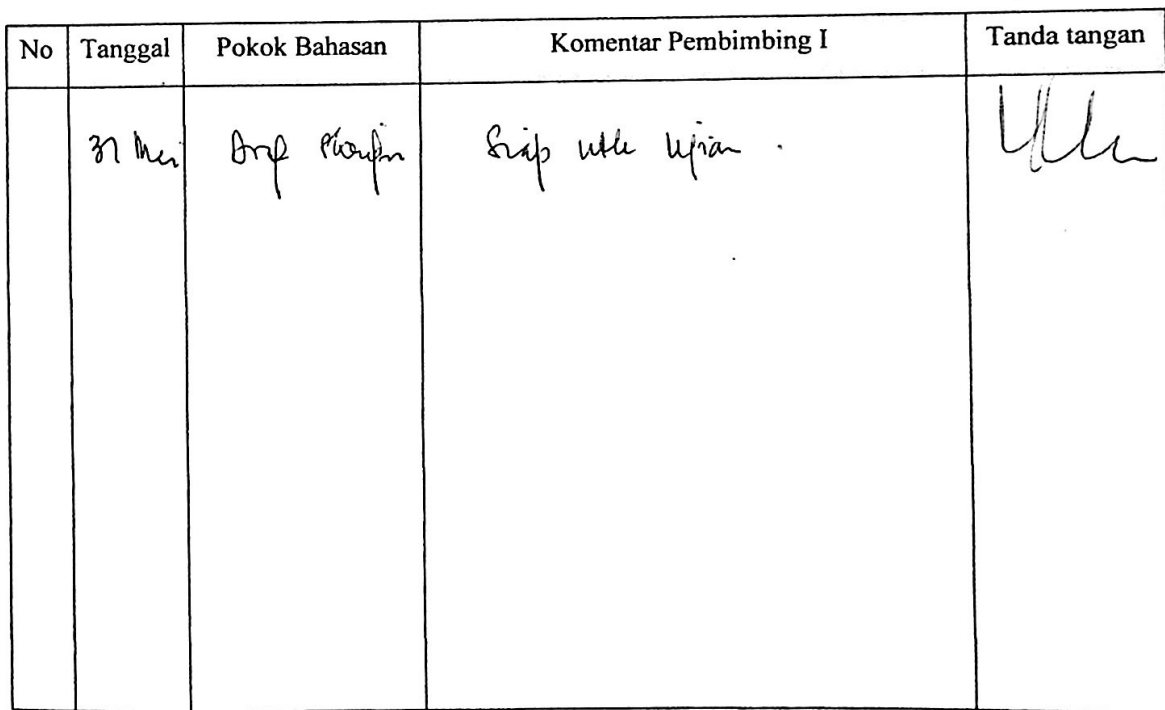 No Tanggal Pokok Bahasan Komentar Pembimbing I Tanda tangan
31 Mei Siap utk Ujian .